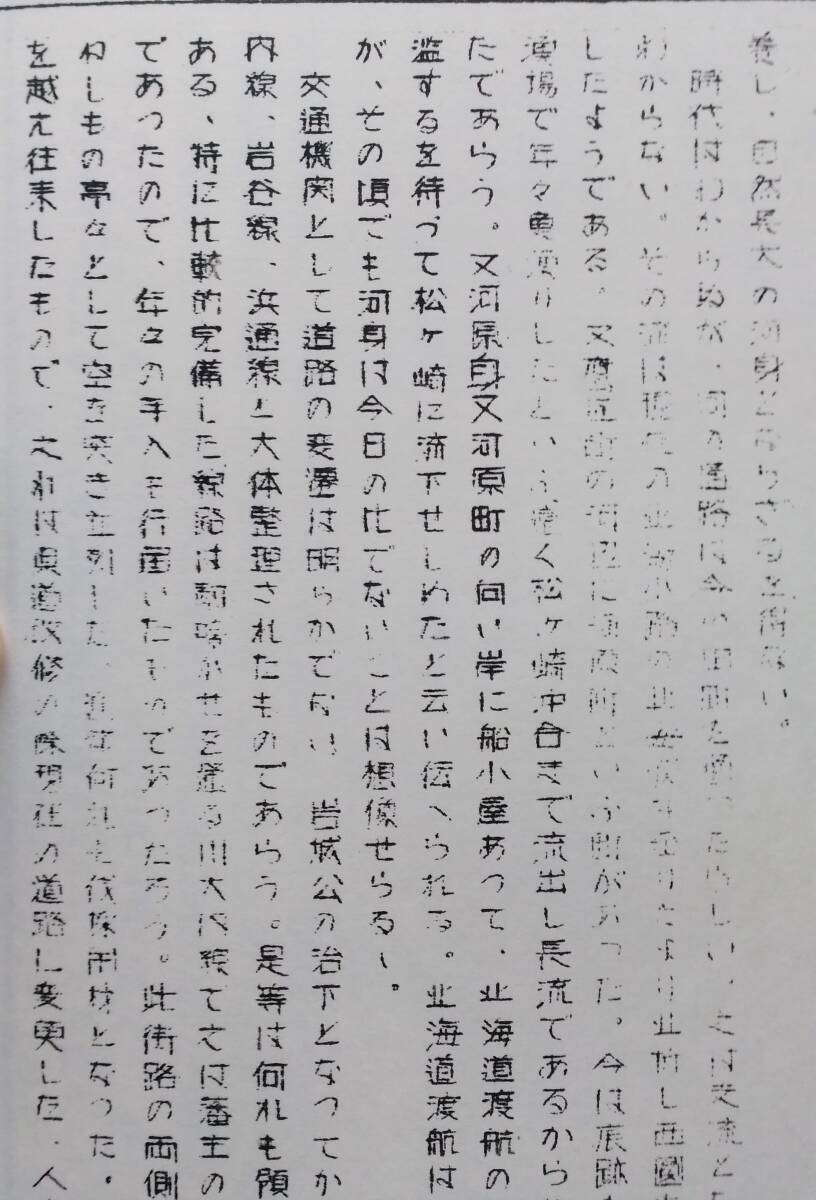 し、自然長大の河身とならざるを得ない。
時代はわからぬが、は今の田町をたらしい、之は支流と
わからない。その流は現在の北小路のより北し西
したようである。又町の河辺に河原町といふ町があった。今は痕跡
漁場で年々魚漁りしたといふ、く松ヶ崎沖合まで流出し長流であるから
たであらう。又河原身又河原町の向い岸に船小屋あって、北海道渡航の
濫するを待って松ヶ崎に流下せしめたと云い伝へられる。北海道渡航は
が、その頃でも河身は今日の比でないことは想像せらるゝ。
交通機関として道路の変遷は明らかでない　岩城公の治下となってか
内線、岩谷線、浜通線と大体整理されたものであらう。是等は何れも領
ある、特に比較的完備した線路はせを登る川大内線で之は藩主の
であったので、年々の手入も行届いたものであったろう。此街路の両側
わしもの亭々として空を突き並列した、何れも伐採用材となった。
を越え往来したもので、之れは県道改修の際現在の道路に変更した、人